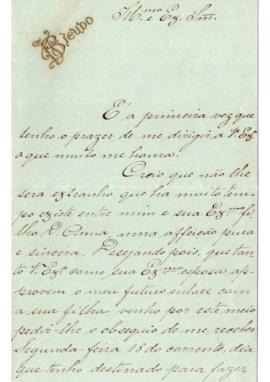 Ill.mo e Ex. Snr.
É a primeira vez que
tenho o prazer de me dirigir a V. Ex.ª
o que muito me honra.
Creio que não lhe
sera extranho que ha muito tem-
po existe entre mim e sua Ex.ma fi-
lha D. Anna, uma affeição pura
e sincera. Desejando pois, que tan-
to V. Ex.ª como sua Ex.ma esposa, ap-
provem o meu futuro enlace com
a sua filha venho por este meio
pedir-lhe o obsequio de me receber
Segunda-feira 18 do corrente, dia
que tenho destinado para fazer